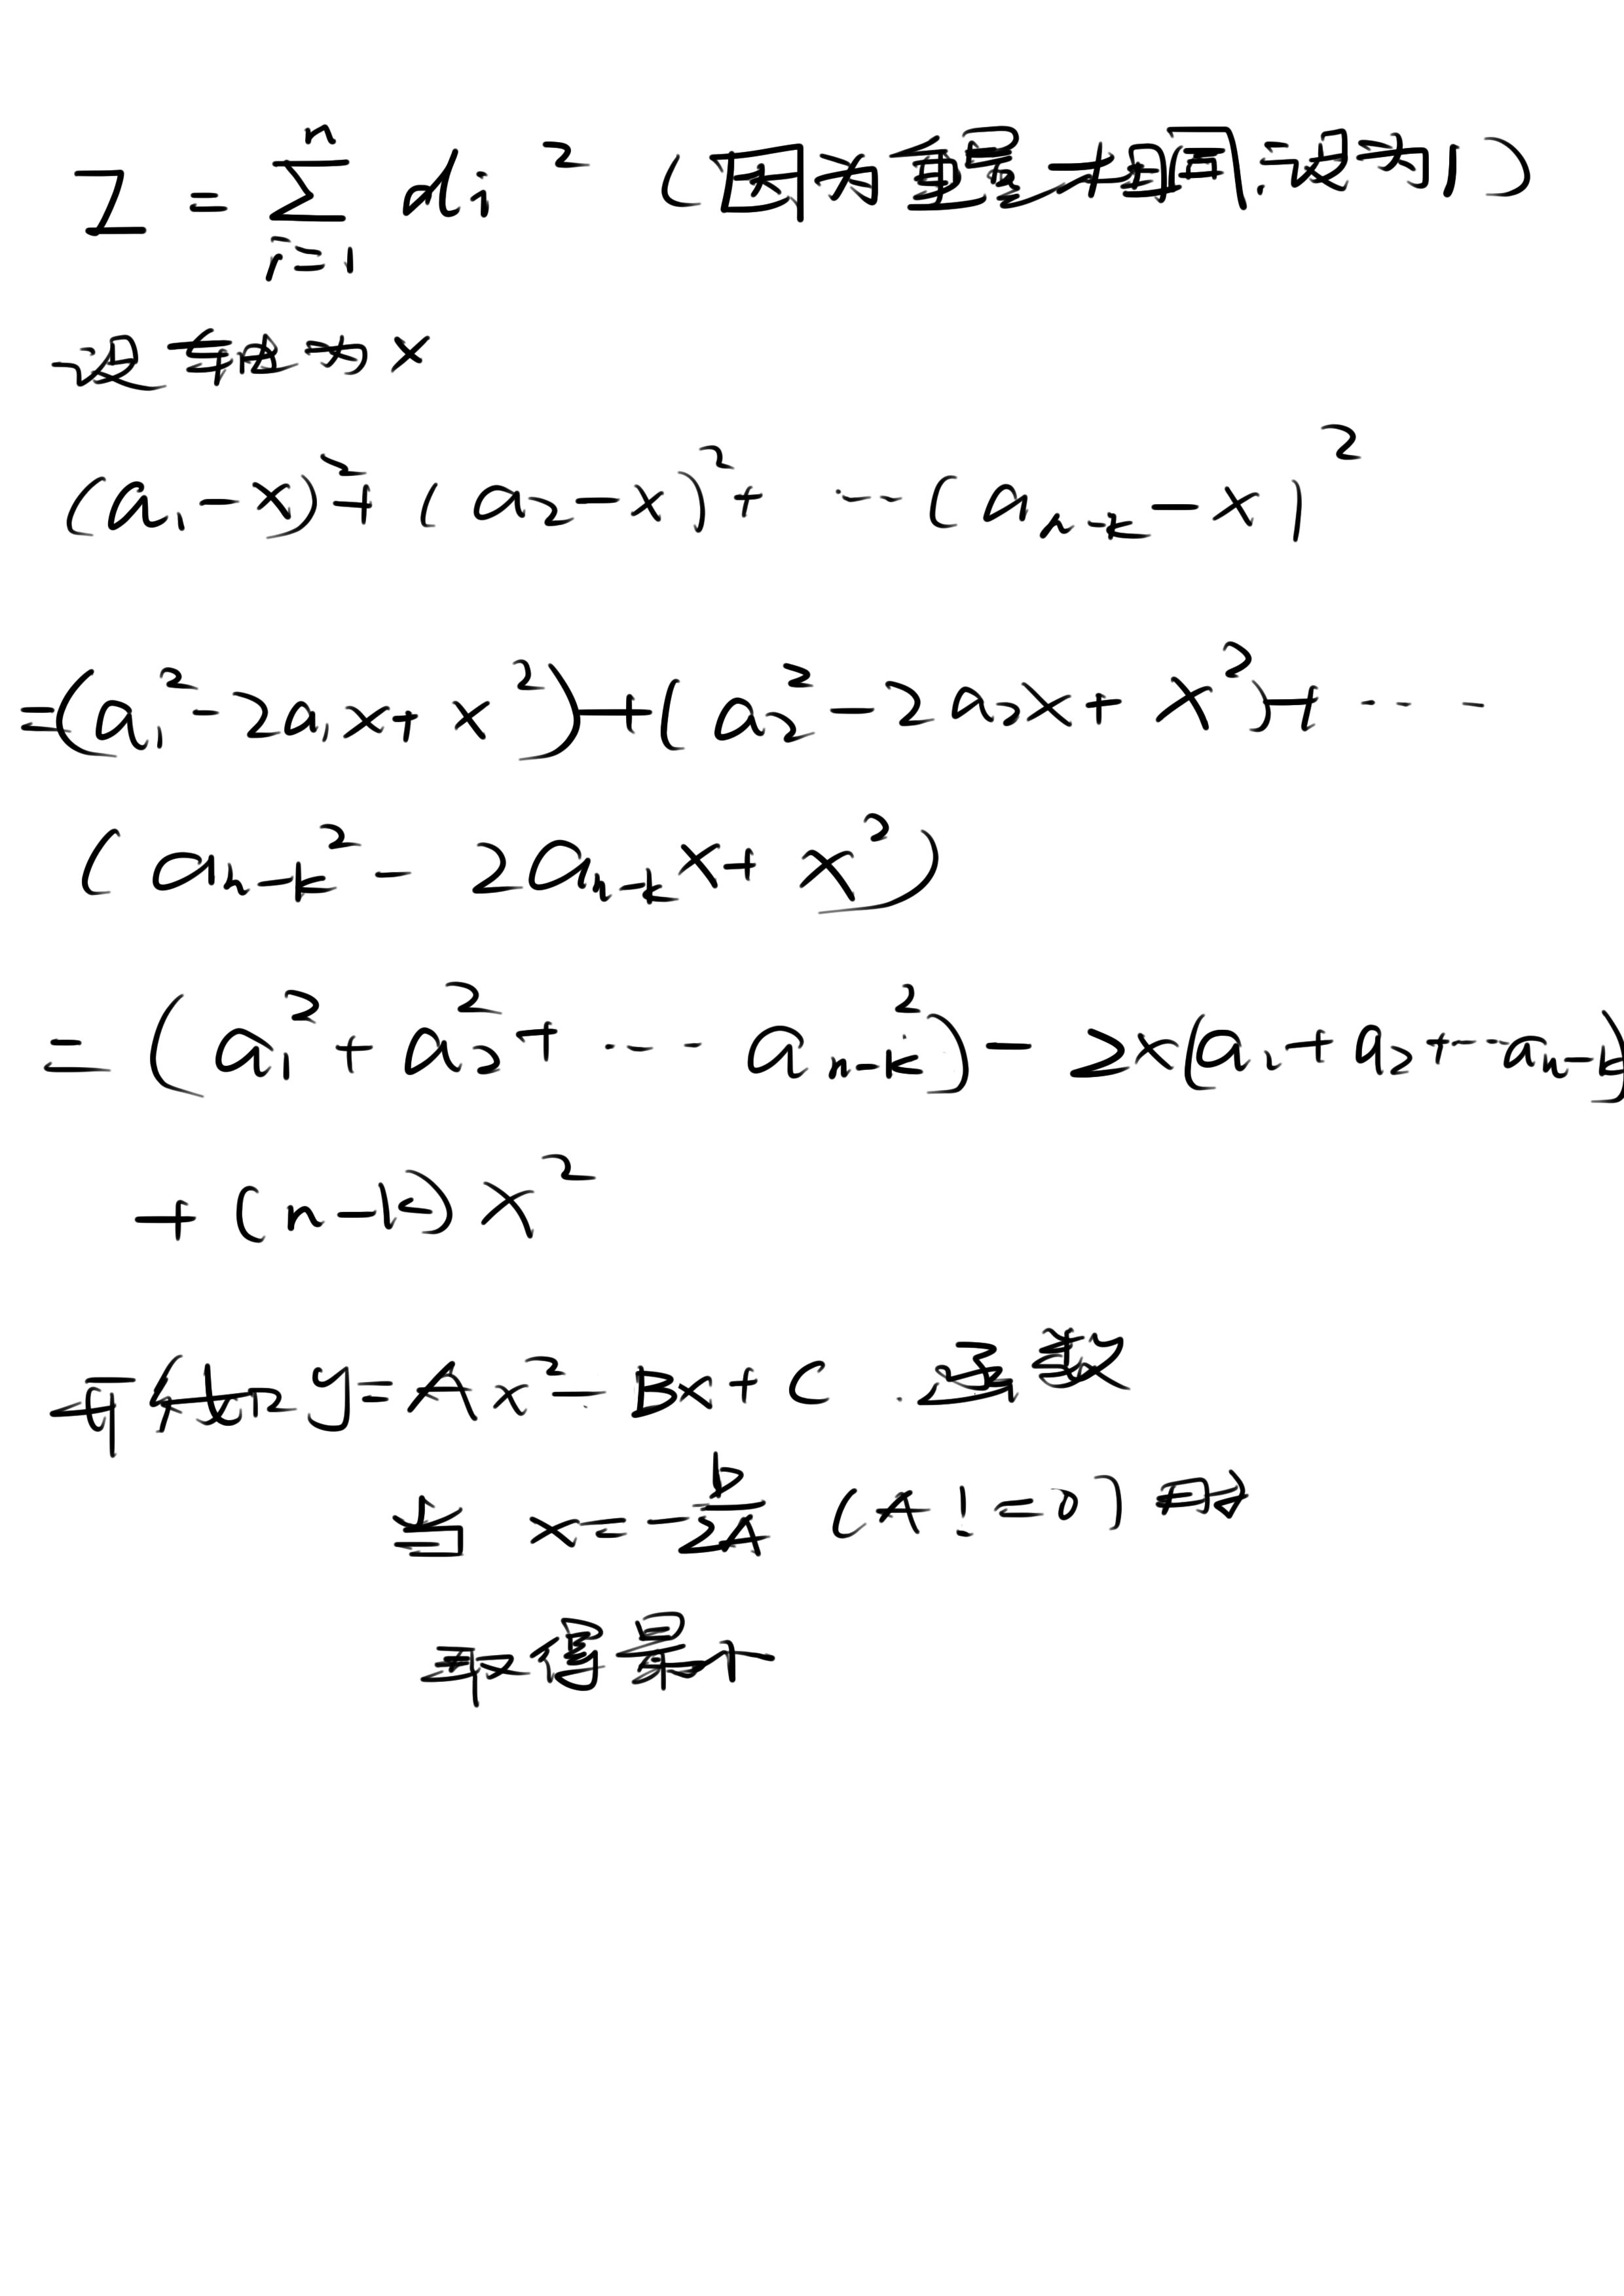 I = ∑_{i=1}^{n} di² (因为重量相同.设为1)
设车由为x
(a₁-x)²+(a₂-x)²+ ··· (a_{n-k}-x)²
=(a₁²-2a₁x+x²)+(a₂²-2a₂x+x²)+ ---
(a_{n-k}²-2a_{n-k}x+x²)
= (a₁²+a₂²+ --- a_{n-k}²)-2x(a₁+a₂+--a_{n-k})
+(n-k)x²
y=Ax²-Bx+C
当 x=-b/2A (A!=0)时
取得最小